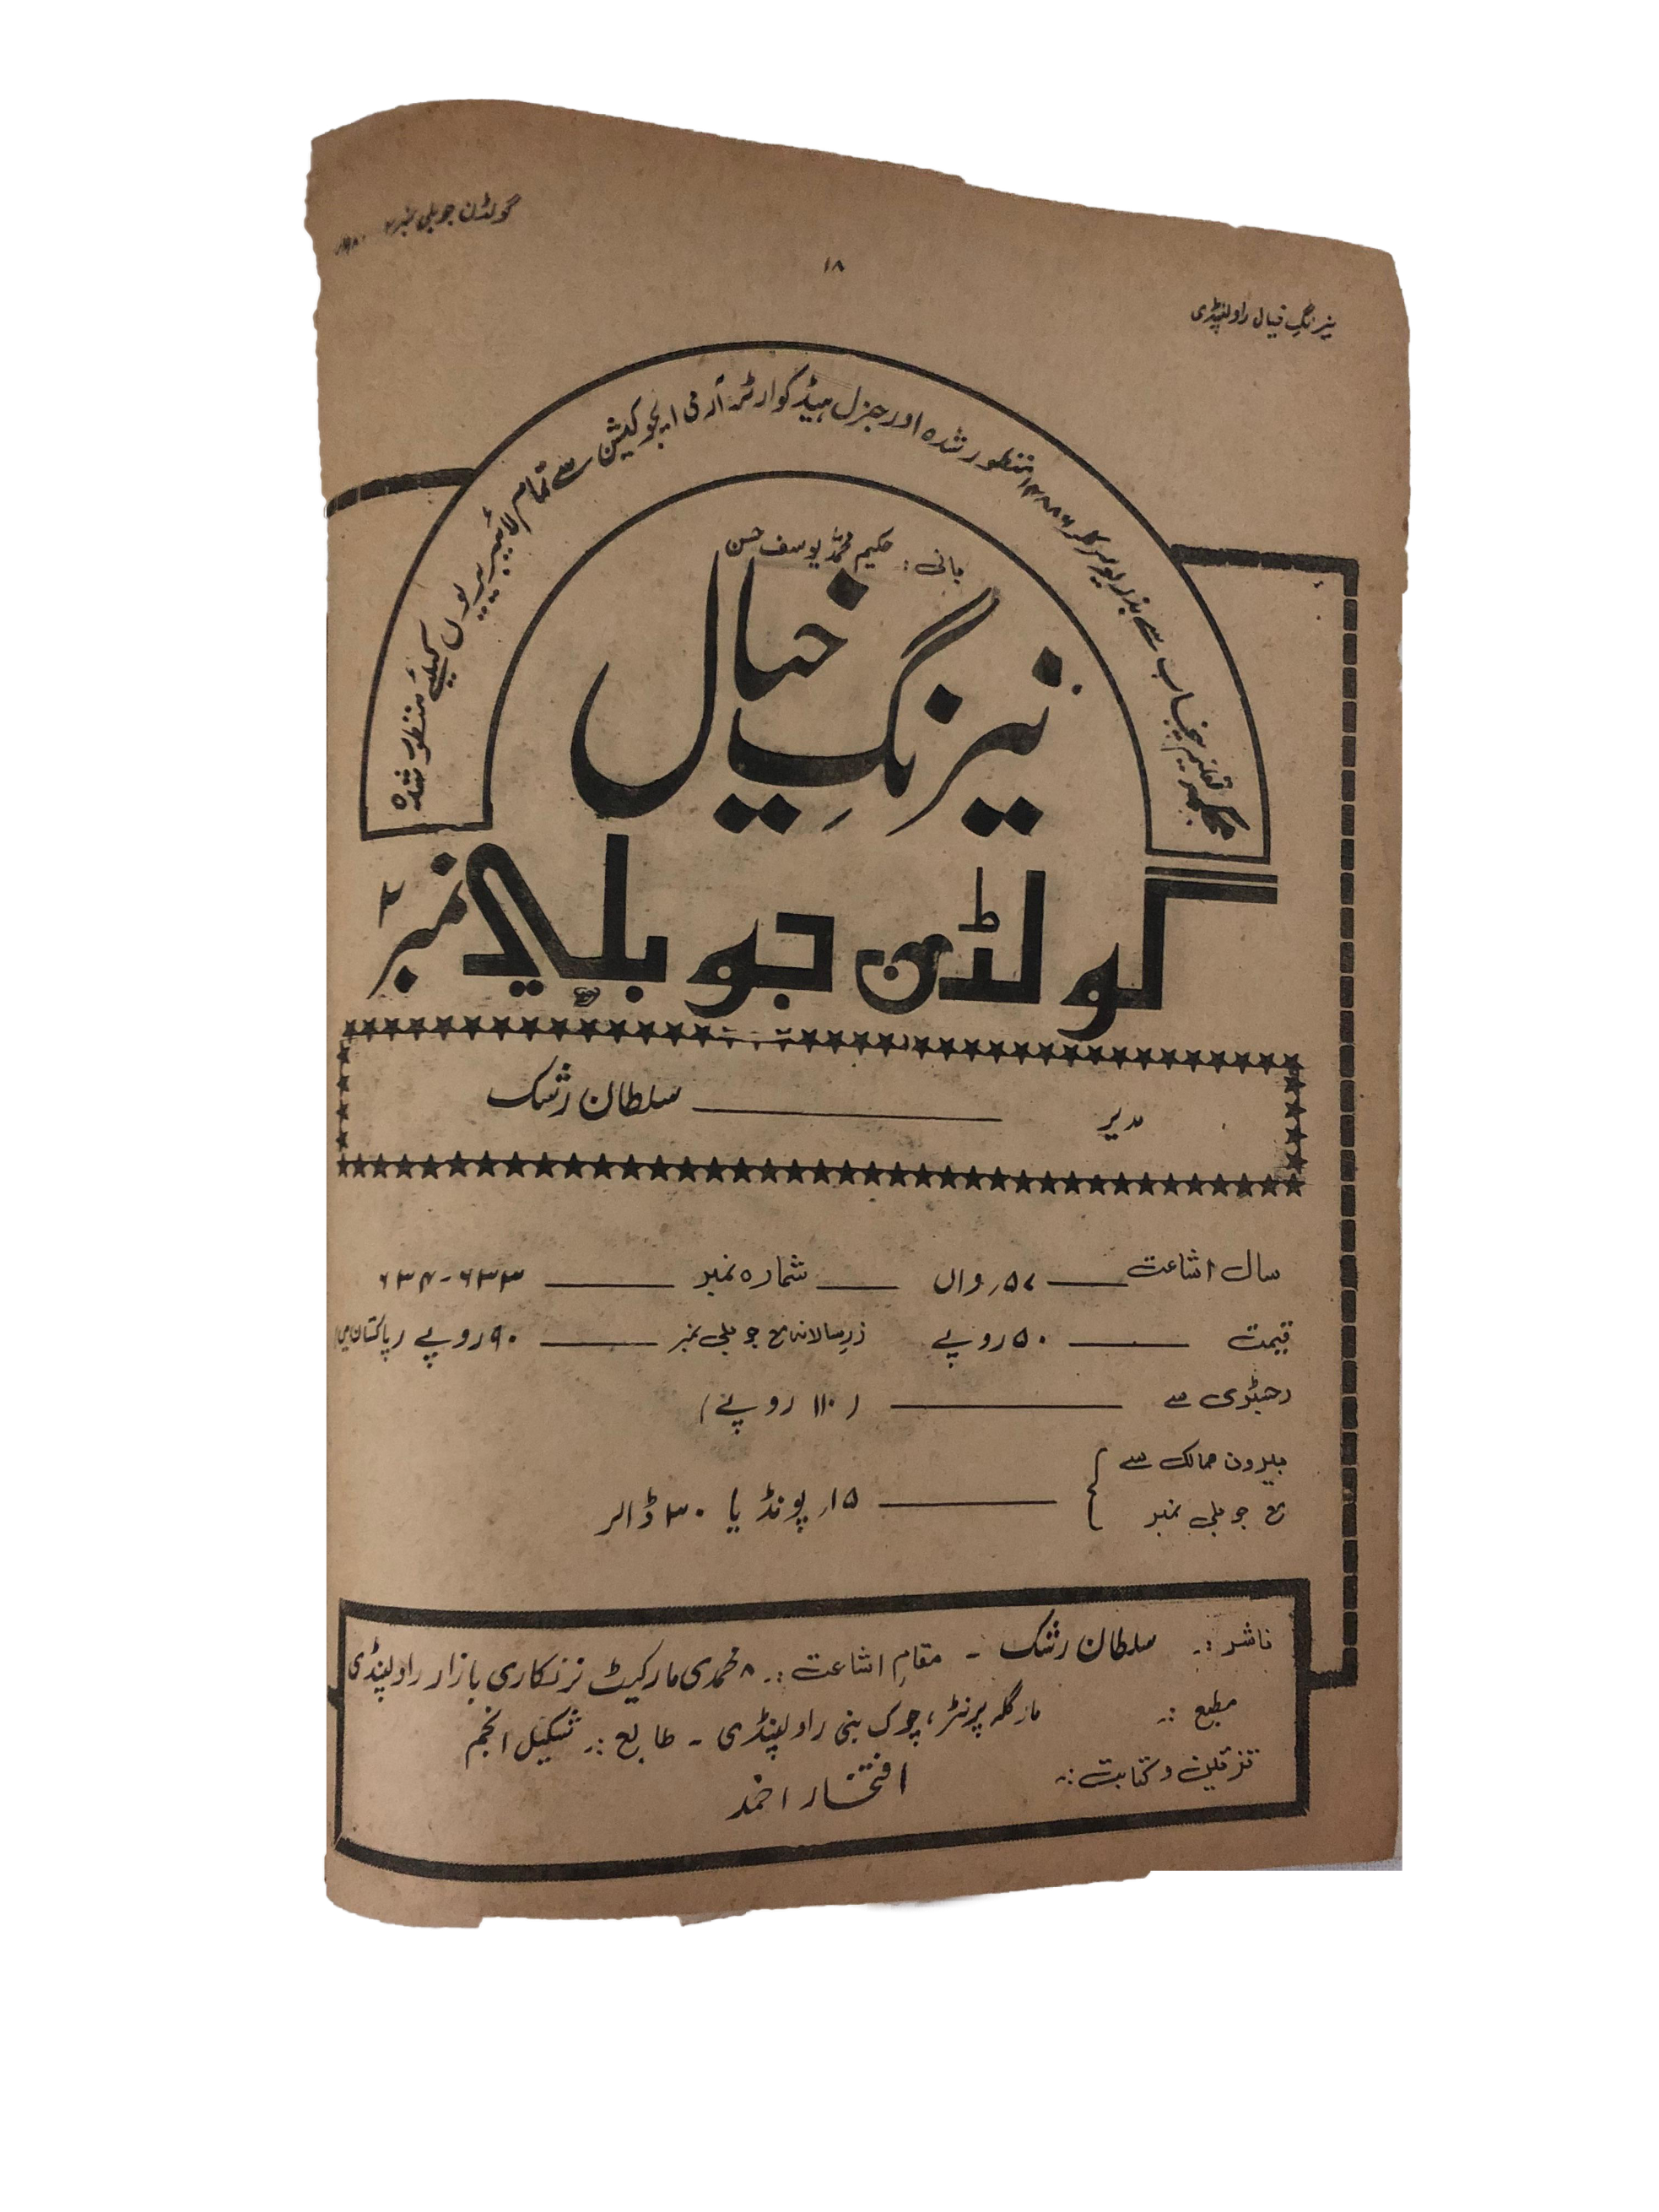 گولڈن جوبلی نمبر ۲
۱۸
نیرنگِ خیال راولپنڈی
محکمہ تعلیم پنجاب سے بذریعہ سرکلر منظور شدہ اور جنرل ہیڈ کوارٹر آرمی ایجوکیشن سے تمام لائیبریریوں کیلئے منظور شدہ
بانی: حکیم محمد یوسف حسن
نیرنگِ خیال
گولڈن جوبلی نمبر ۲
مدیر ــــــ سلطان رشک
سال اشاعت ــــــ ۵۷ر واں ــــــ شمارہ نمبر ــــــ ۶۳۳-۶۳۴
قیمت ــــــ ۵۰ روپے زرِ سالانہ مع جوبلی نمبر ــــــ ۹۰ روپے (پاکستان میں)
رجسٹری سے ــــــ (۱۱۰ روپے)
بیرون ممالک سے
مع جوبلی نمبر ــــــ ۱۵ر پونڈ یا ۳۰ ڈالر
ناشر :۔ سلطان رشک ۔ مقامِ اشاعت :۔ ۸ محمدی مارکیٹ نرنکاری بازار راولپنڈی
مطبع :۔ مارگلہ پرنٹر، چوک بنی راولپنڈی ۔ طابع :۔ شکیل انجم
تزئین و کتابت :۔ افتخار احمد